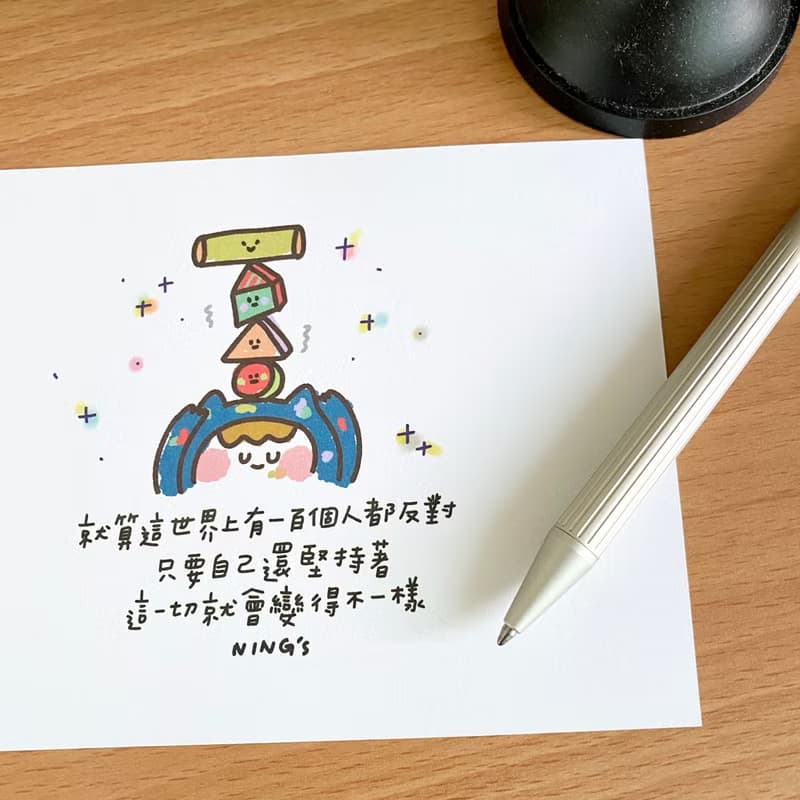 就算這世界上有一百個人都反對
只要自己還堅持著
這一切就會變得不一樣
NING's